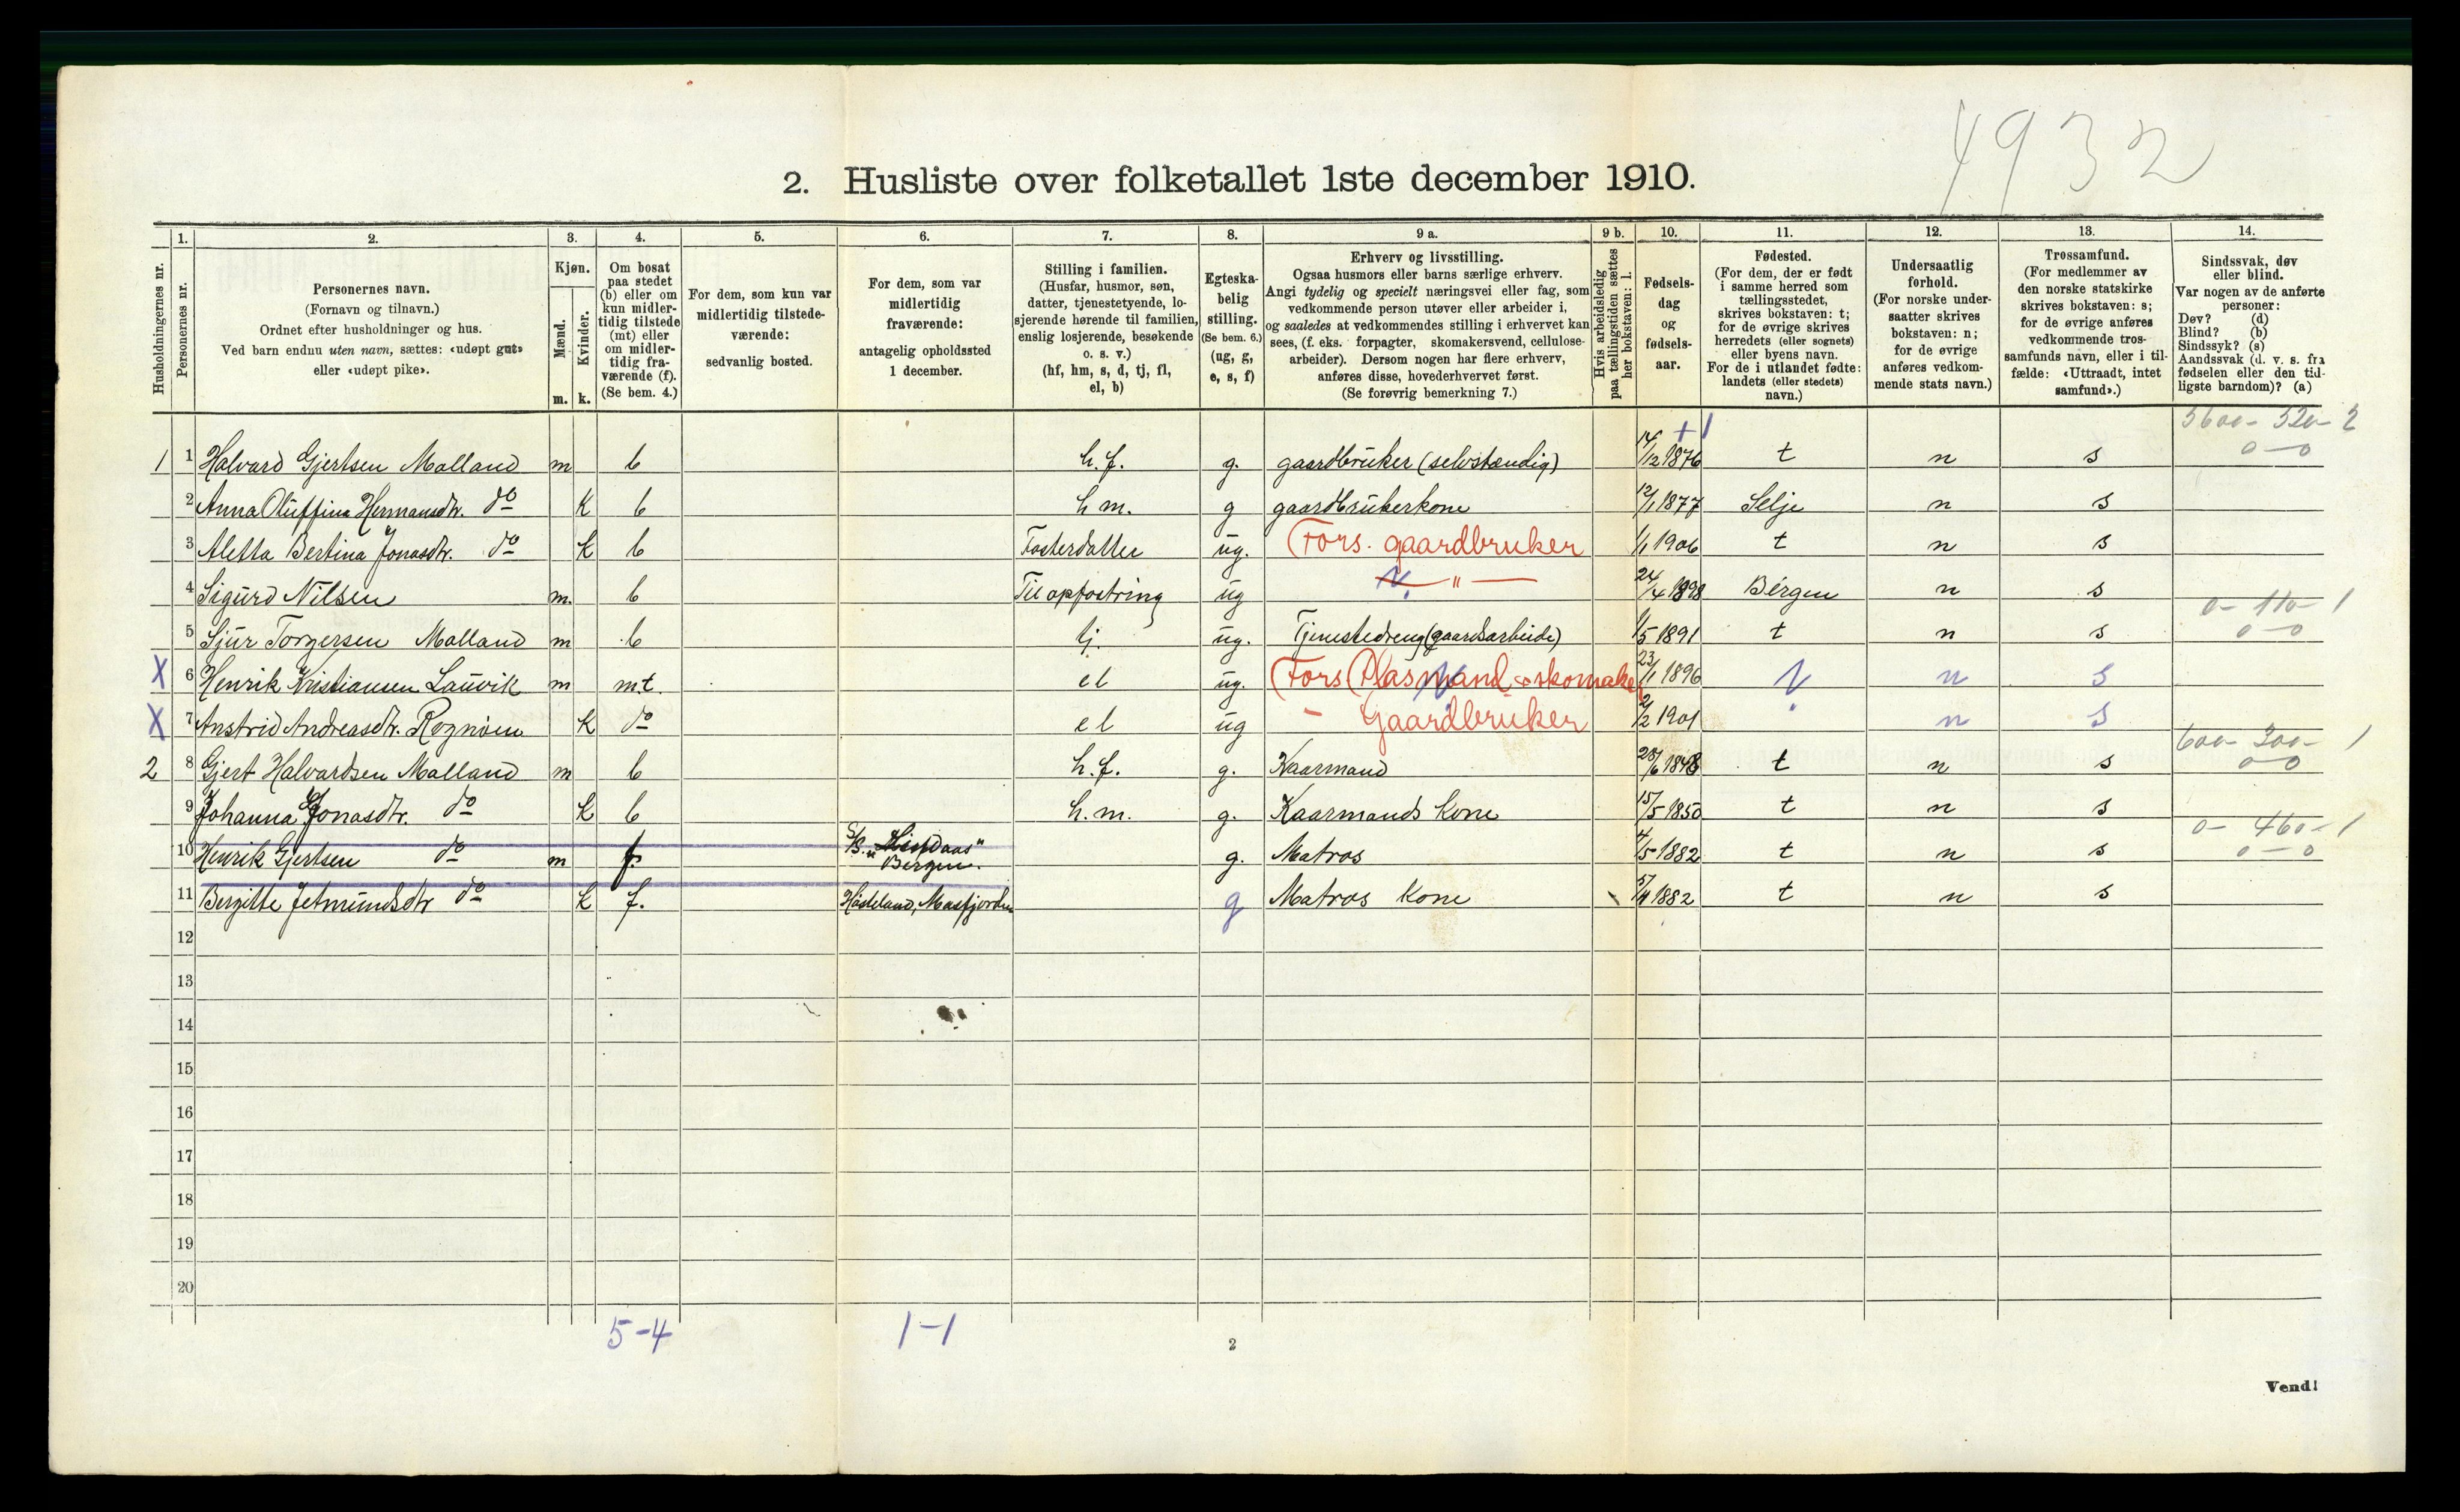 4932
2. Husliste over folketallet 1ste december 1910.
Husholdningernes nr.
1. Personernes nr.
2. Personernes navn.
(Fornavn og tilnavn.)
Ordnet efter husholdninger og hus.
Ved barn endnu uten navn, sættes: «udøpt gut»
eller «udøpt pike».
3. Kjøn.
Mænd. m.
Kvinder. k.
4. Om bosat
paa stedet
(b) eller om
kun midler-
tidig tilstede
(mt) eller
om midler-
tidig fra-
værende (f).
(Se bem. 4.)
5. For dem, som kun var
midlertidig tilstede-
værende:
sedvanlig bosted.
6. For dem, som var
midlertidig
fraværende:
antagelig opholdssted
1 december.
7. Stilling i familien.
(Husfar, husmor, søn,
datter, tjenestetyende, lo-
sjerende hørende til familien,
enslig losjerende, besøkende
o. s. v.)
(hf, hm, s, d, tj, fl,
el, b)
8. Egteska-
belig
stilling.
(Se bem. 6.)
(ug, g,
e, s, f)
9 a. Erhverv og livsstilling.
Ogsaa husmors eller barns særlige erhverv.
Angi tydelig og specielt næringsvei eller fag, som
vedkommende person utøver eller arbeider i,
og saaledes at vedkommendes stilling i erhvervet kan
sees, (f. eks. forpagter, skomakersvend, cellulose-
arbeider). Dersom nogen har flere erhverv,
anføres disse, hovederhvervet først.
(Se forøvrig bemerkning 7.)
9 b. Hvis arbeidsledig
paa tællingstiden sættes
her bokstaven: l.
10. Fødsels-
dag
og
fødsels-
aar.
11. Fødested.
(For dem, der er født
i samme herred som
tællingsstedet,
skrives bokstaven: t;
for de øvrige skrives
herredets (eller sognets)
eller byens navn.
For de i utlandet fødte:
landets (eller stedets)
navn.)
12. Undersaatlig
forhold.
(For norske under-
saatter skrives
bokstaven: n;
for de øvrige
anføres vedkom-
mende stats navn.)
13. Trossamfund.
(For medlemmer av
den norske statskirke
skrives bokstaven: s;
for de øvrige anføres
vedkommende tros-
samfunds navn, eller i til-
fælde: «Uttraadt, intet
samfund».)
14. Sindssvak, døv
eller blind.
Var nogen av de anførte
personer:
Døv? (d)
Blind? (b)
Sindssyk? (s)
Aandssvak (d. v. s. fra
fødselen eller den tid-
ligste barndom)? (a)
5600- 520- 2
1 1 Halvard Gjertsen Malland m b h.f. g. gaardbruker (selvstændig) 14/12 1876 t n s 0-0
2 Anna Oluffina Hermansdtr. do K b h m. g gaardbrukerkone 12/1 1877 Selje n s
3 Aletta Bertina Jonasdtr. do K b Fosterdatter ug. (Fors. gaardbruker 1/1 1906 t n s
4 Sigurd Nilsen m. b Til opfostring ug " 24/4 1898 Bergen n s
0- 110- 1
5 Sjur Torgersen Malland m b tj. ug. Tjenestedreng (gaardsarbeide) 1/5 1891 t n s 0-0
X 6 Henrik Kristiansen Lauvik m m.t. el ug. (Fors (Plasmand & skomaker 23/1 1896 n s
X 7 Anstrid Andreasdtr. Rognøen K do el ug - Gaardbruker 2/2 1901 n s
600- 300- 1
2 8 Gjert Halvardsen Malland m b h.f. g. Kaarmand 28/6 1848 t n s 0-0
9 Johanna Jonasdtr. do K b h.m. g. Kaarmands Kone 15/5 1850 t n s
0- 460- 1
10 Henrik Gjertsen do m f. Bergen. g. Matros 4/5 1882 t n s 0-0
11 Bergitte Jetmundsdtr do K f. Hosteland, Masfjorden g Matros Kone 5/4 1882 t n s
12
13
14
15
16
17
18
19
20
5-4 1-1
2
Vend!